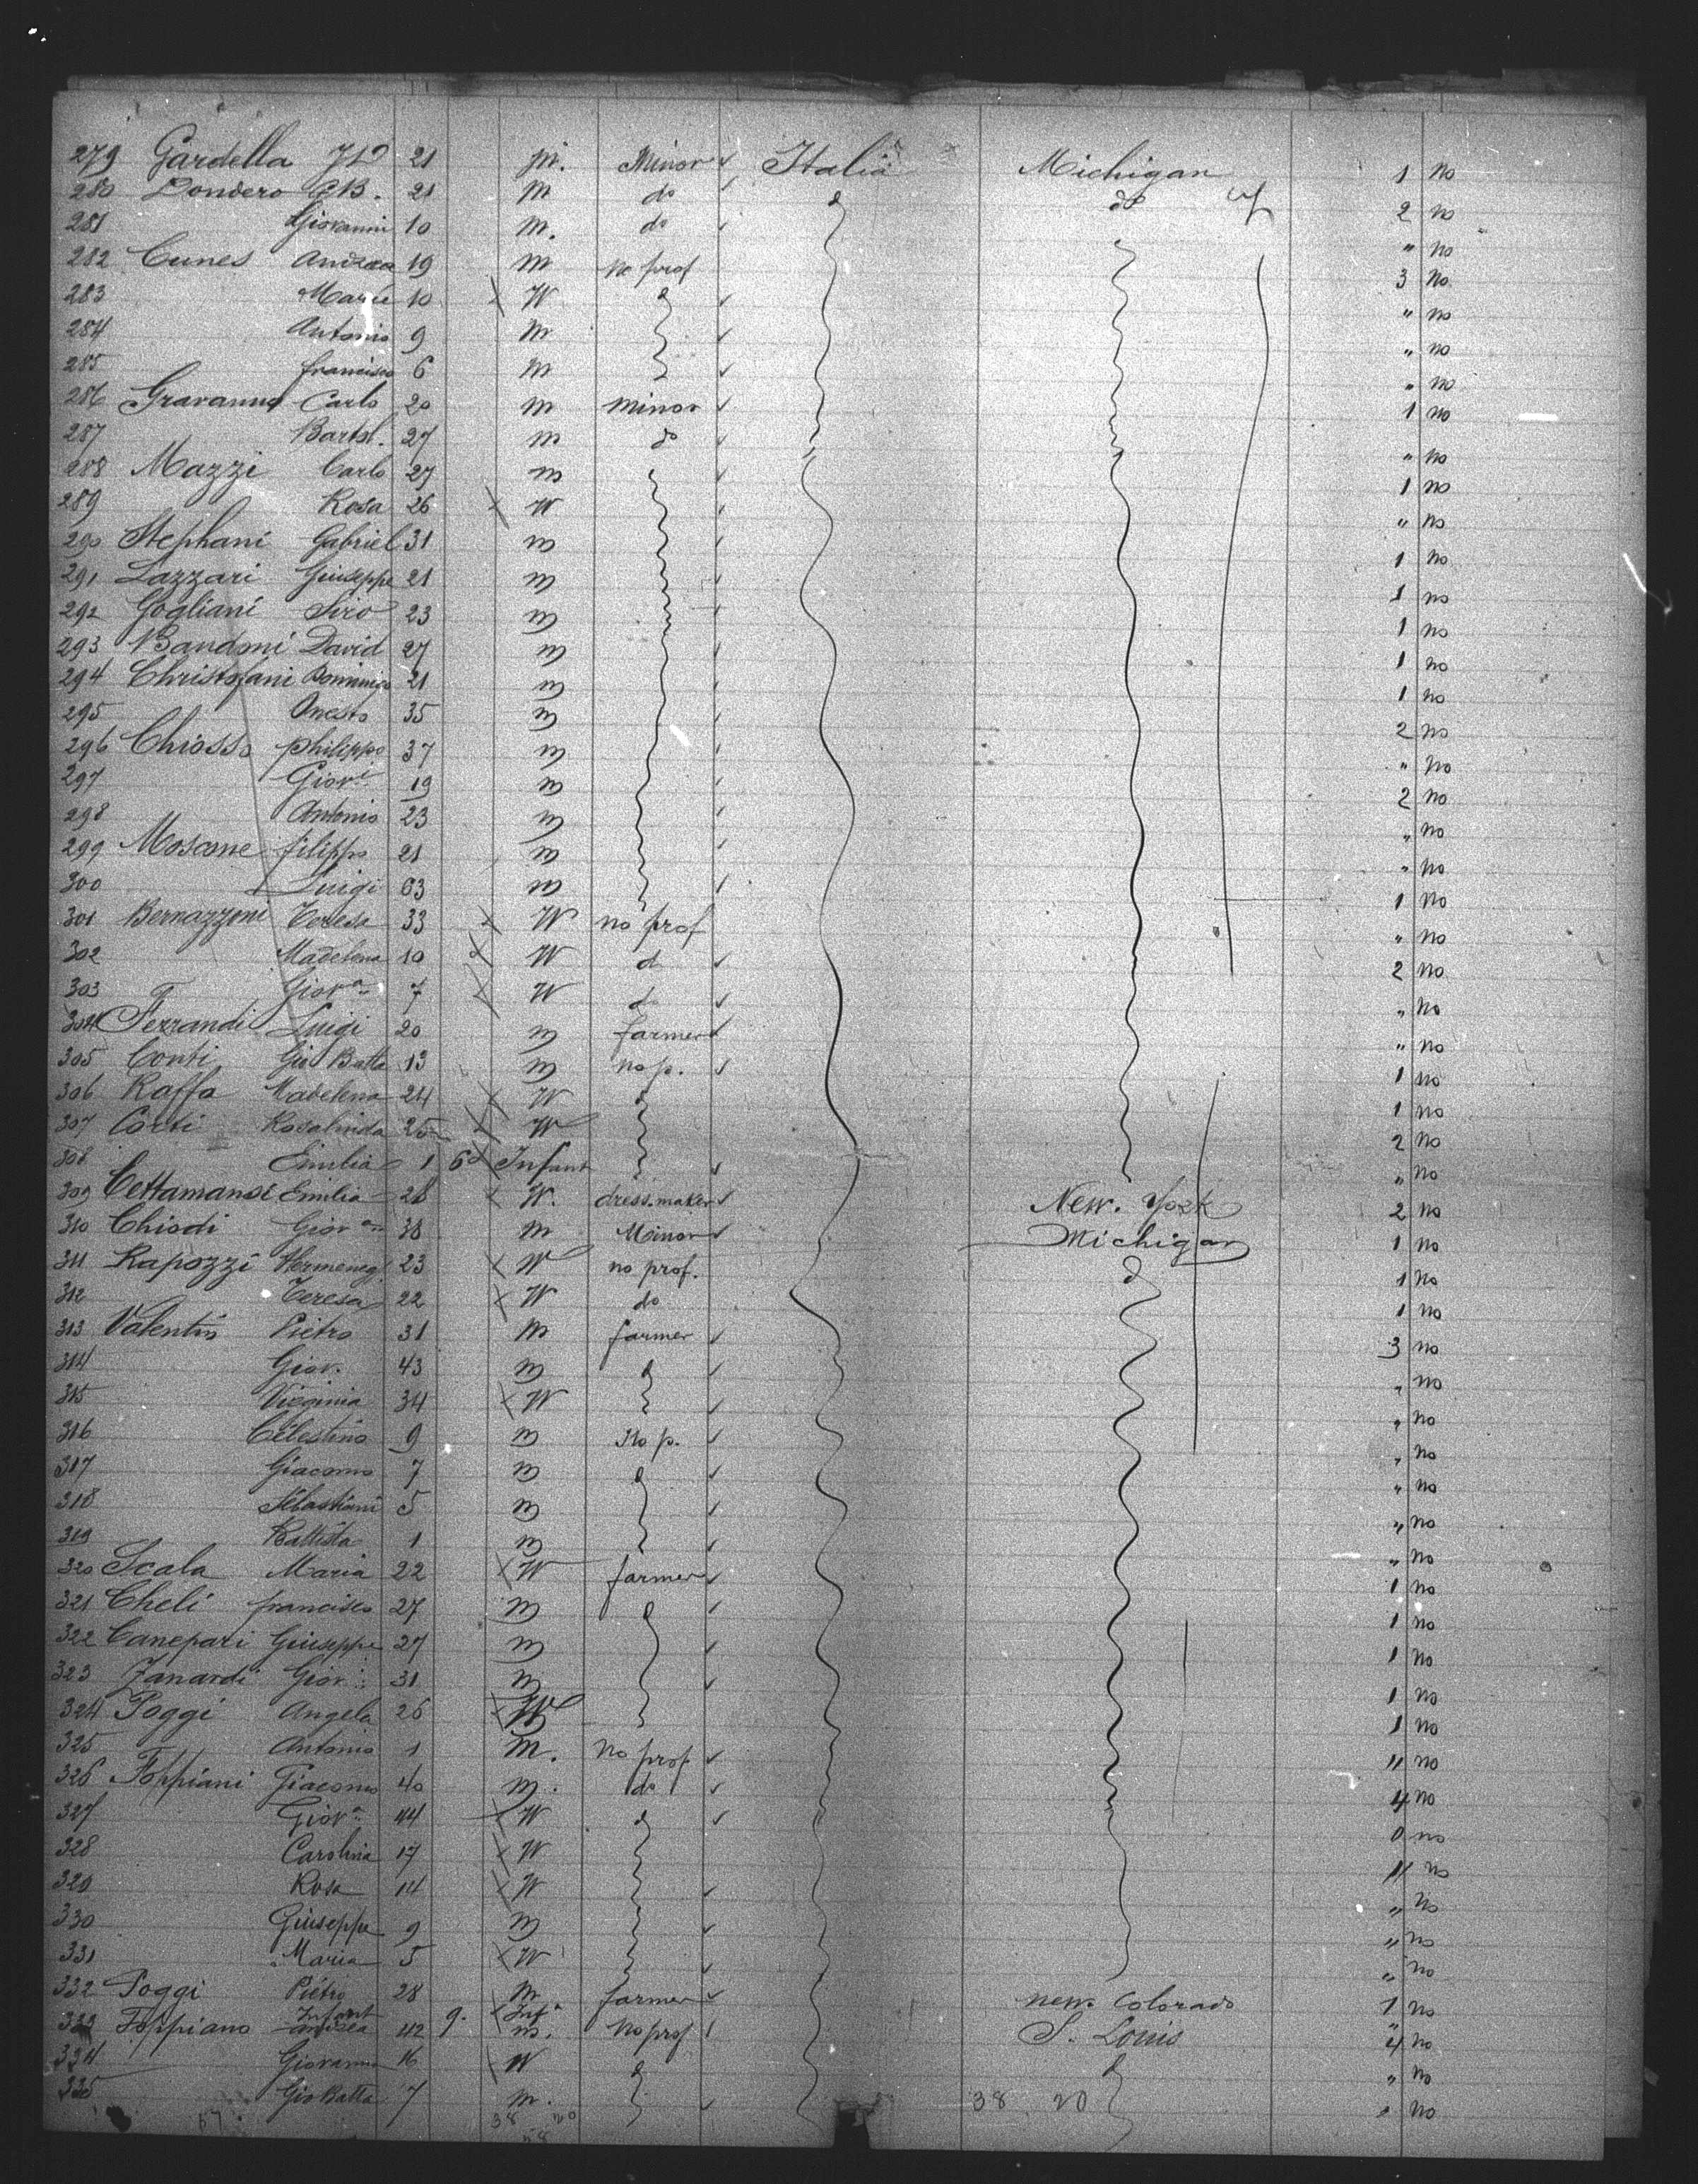 279 Gardella 21 m. Minor Italia Michigan 1 No
280 Dondero GB. 21 m do do 2 no
281 Giovanni 10 m. do " no
282 Cunes Andrea 19 m no prof 3 No
283 Marie 10 W " no
284 Antonio 9 m " no
285 francisco 6 m " no
286 Gravanno Carlo 20 m minor 1 no
287 Bartol. 27 m do " no
288 Mazzi Carlo 27 m 1 no
289 Rosa 26 W " no
290 Stephani Gabriel 31 m 1 no
291 Lazzari Giuseppe 21 m 1 no
292 Gogliani Siro 23 m 1 no
293 Bandoni David 27 m 1 no
294 Christofani Dominigo 21 m 1 no
295 Onesto 35 m 2 no
296 Chiosso philippo 37 m " no
297 Giov.i 19 m 2 no
298 Antonio 23 m " no
299 Moscone filippo 21 m " no
300 Luigi 63 m 1 no
301 Bernazzoni Teresa 33 W no prof " no
302 Madelena 10 W d 2 no
303 Giov.a 7 W do " no
304 Ferrandi Luigi 20 m farmer " no
305 Conti Gio Batta 13 m no p. 1 no
306 Raffo Madelena 24 W 1 no
307 Corti Rosalinda 25 W 2 no
308 Emilia 1 6 Infant " no
309 Cettamansi Emilia 28 W. dress.maker New. York 2 no
310 Chiodi Giov 38 m Minor Michigan 1 no
311 Rapozzi Hermeneg 23 W no prof. d 1 no
312 Teresa 22 W do 1 no
313 Valentin Pietro 31 m farmer 3 no
314 Giov. 43 m " no
315 Virginia 34 W " no
316 Célestino 9 m No p. " no
317 Giacomo 7 m " no
318 Sébastiani 5 m " no
319 Battista 1 m " no
320 Scala Maria 22 W farmer 1 no
321 Cheli francisco 27 m 1 no
322 Canepari Giuseppe 27 m 1 no
323 Zanardi Giov. 31 m 1 no
324 Poggi Angela 26 W 1 no
325 Antonio 1 m. no prof " no
326 Foppiani Giacomo 40 m. do 4 no
327 Giov.a 44 W 0 no
328 Carolina 17 W " no
329 Rosa 14 W " no
330 Giuseppe 9 m " no
331 Maria 5 W " no
332 Poggi Piétro 28 m farmer new. Colorado 1 no
Infant 9. Inf "
333 Foppiano andrea 42 m. No prof S. Louis 4 no
334 Giovanna 16 W " no
335 Gio Batta 7 m. " no
57 38 20 38 20
58